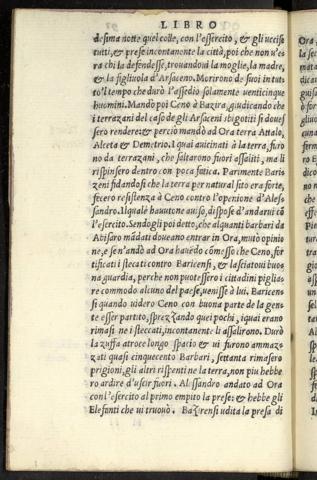 LIBRO
desima notte quel colle, con l'essercito, & gli uccise
tutti, & prese incontanente la città, poi che non u'e-
ra chi la defendesse, trouandoui la moglie, la madre,
& la figliuola d'Arsaceno. Morirono de suoi in tut-
to'l tempo che durò l'assedio solamente uenticinque
huomini. Mandò poi Ceno à Bazira, giudicando che
i terrazani del caso de gli Arsaceni sbigotiti si doues-
sero rendere: & perciò mandò ad Ora terra Attalo,
Alceta & Demetrio. I quai auicinati à la terra, furo
no da terrazani, che saltarono fuori assaliti, ma li
rispinsero dentro con poca fatica. Parimente Bari-
zeni fidandosi che la terra per natural sito era forte,
fecero resistenza à Ceno contro l'openione d'Ales-
sandro. Ilquale hauutone auiso, dispose d'andarui cō
l'essercito. Sendogli poi detto, che alquanti barbari da
Abisaro mādati doueano entrar in Ora, mutò opinio
ne, e sen'andò ad Ora hauēdo cōmesso che Ceno, for-
tificati i stecati contro Baricensi, & lasciatoui buo-
na guardia, perche non potessero i cittadini piglia-
re commodo alcuno del paese, uenisse à lui. Baricen-
si quando uidero Ceno con buona parte de la gen-
te esser partito, sprezzando quei pochi, iquai erano
rimasi ne i steccati, incontanente li assalirono. Durò
la zuffa atroce longo spacio & ui furono ammaz-
zati quasi cinquecento Barbari, settanta rimasero
prigioni, gli altri rispenti ne la terra, non piu hebbe
ro ardire d'uscir fuori. Alessandro andato ad Ora
con l'essercito al primo empito la prese: & hebbe gli
Elefanti che ui truouò. Bazirensi udita la presa di